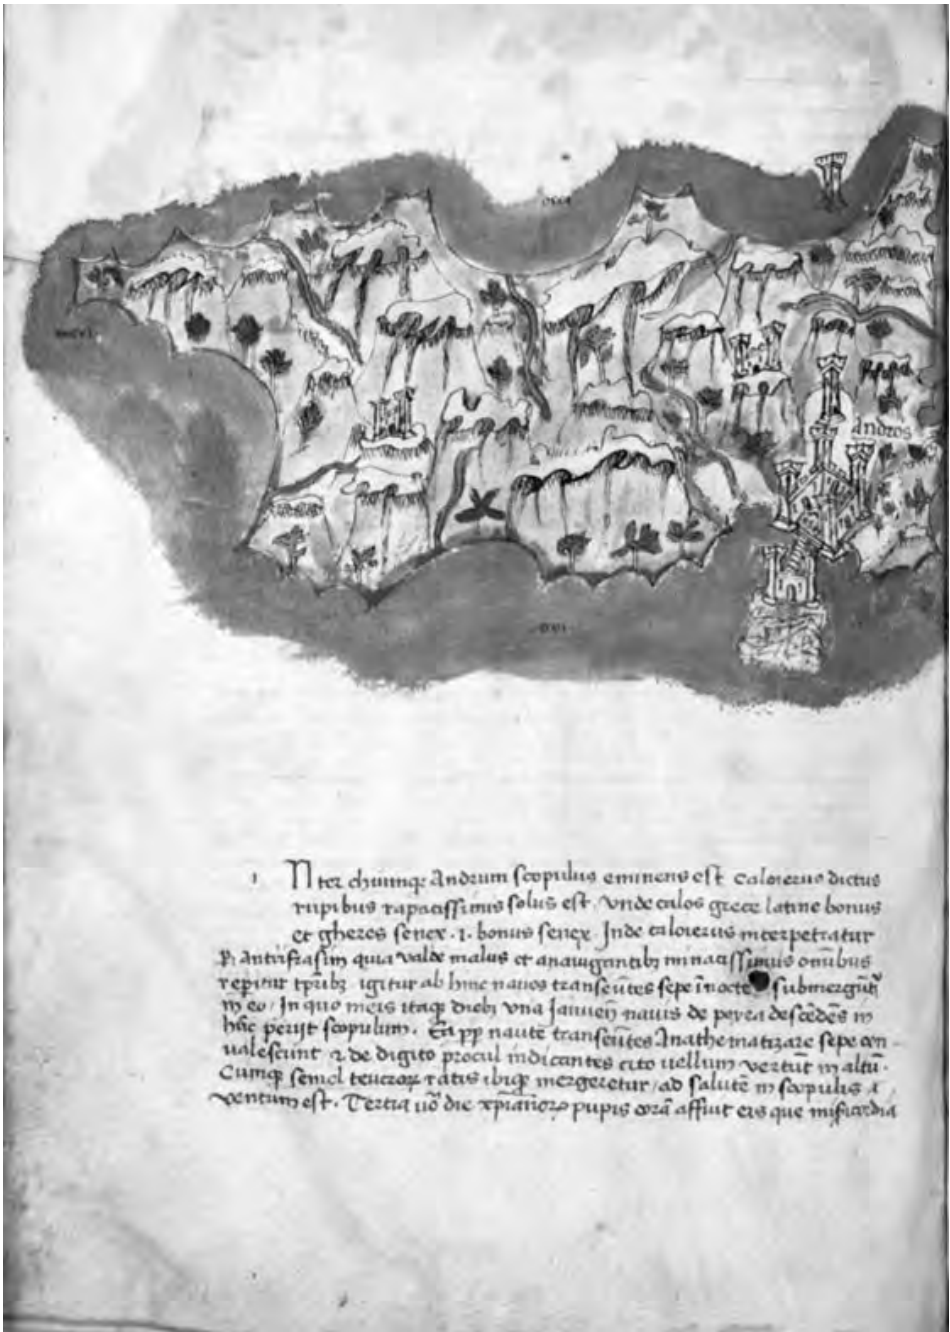 Andros
Nter chiumqꝫ Andrum scopulus eminens est caloierus dictus
rupibus rapacissimis solus est. vnde calos grece latine bonus
et gheres senex .i. bonus senex. Inde caloierus interpetratur
ꝑ Antrifrasim quia valde malus et anauigantibꝫ minacissimus omībus
reperitur tp̄ribꝫ igitur ab hinc nauos transeūtes sepe ī nocte submergūt
in eo. In quo meis itaqꝫ diebꝫ vna Januēn nauis de peyra descēdēs in
hūc perijt scopulum. Ea pp nautē transeūtes Anathematizare sepe con-
ualescunt ⁊ de digito procul indicantes cito uellum vertūt in altū.
Cumqꝫ semel teucroꝝ ratis ibiqꝫ mergeretur, ad salutē in scopulis
ventum est. Tertia uō die xp̄ianoꝝ pupis corā affuit eis que mīsicordiā